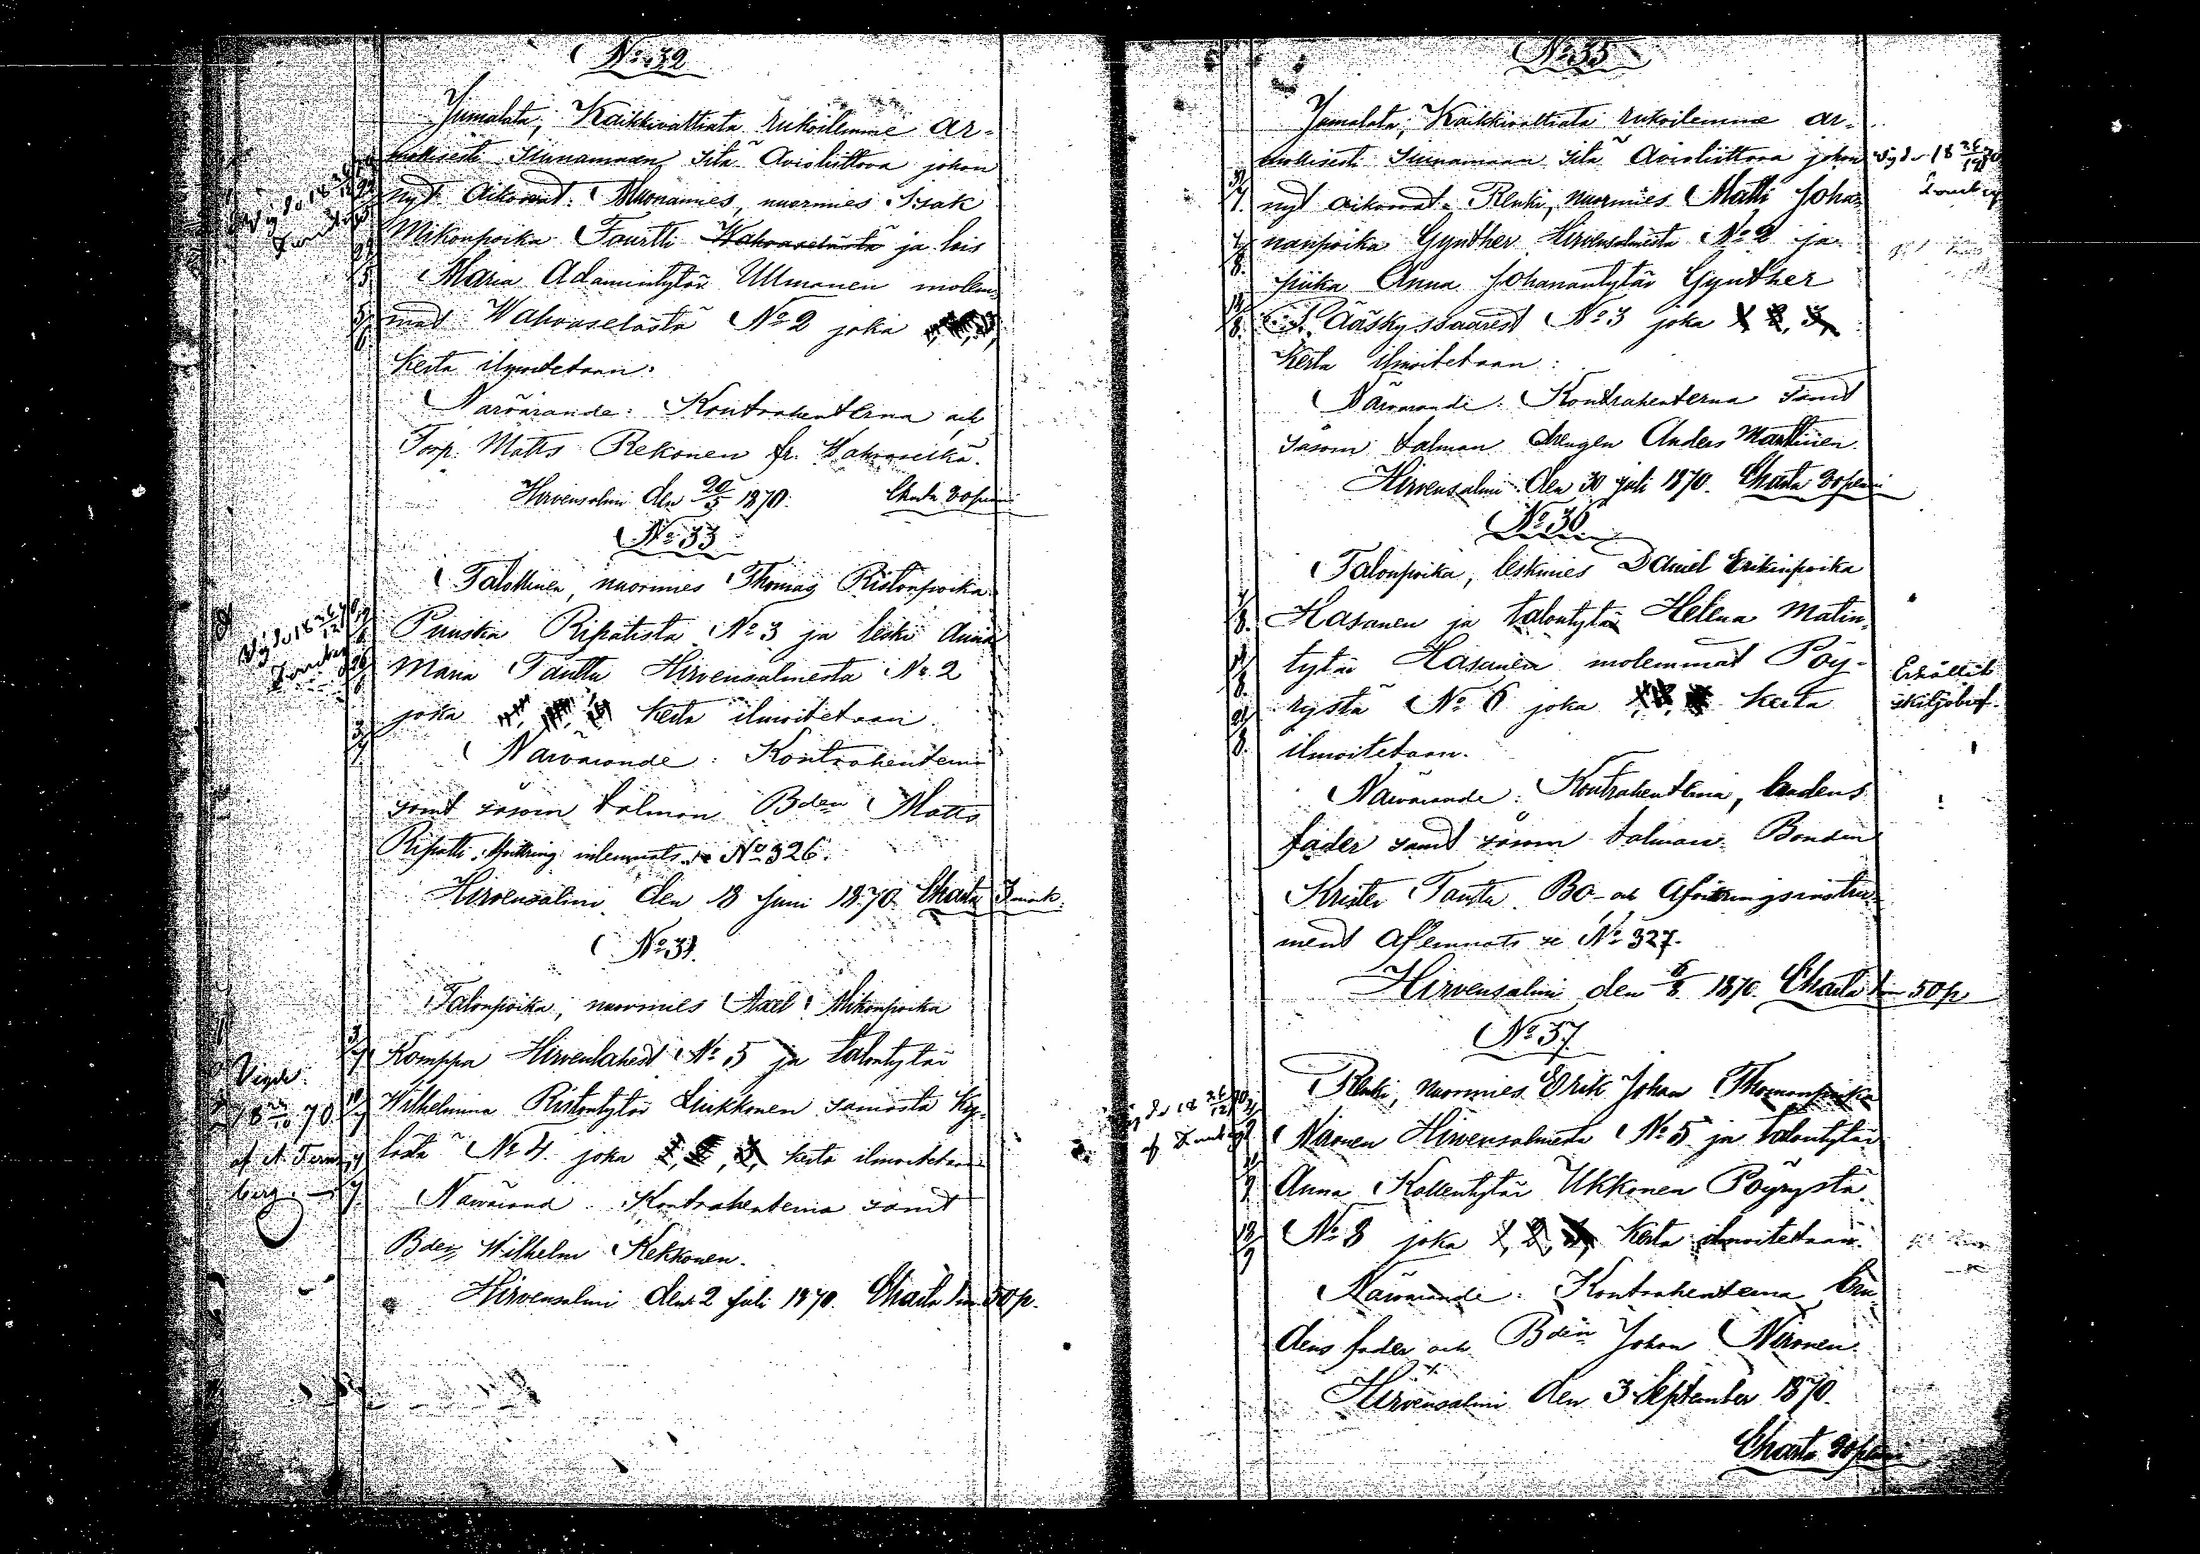 No 32
Jumalata, Kaikkivaltiata rukoilemme ar-
mollisesti siunamaan sitä Avioliittoa johon
nyt aikovat: Muonamies, nuormies Isak
Mikonpoika Tourtti Wahvaselästä ja leis
Maria Adamintytär Ullmanen molem-
mat Wahvaselästä No 2 joka 1, 2, 3,
kerta ilmoitetaan:
Närvarande: Kontrahenterna och
Torp. Matts Rekonen fr. Wahvaselkä.
Hirvensalmi den 20/5 1870. Charta 30 penni
No 33
Talollinen, nuormies Thomas Ristonpoika
Puuska Ripatista No 3 ja leski Anna
Maria Tauttu Hirvensalmesta No 2
joka kerta ilmoitetaan
Närvarande: Kontrahenterna
samt såsom talman Bden Matts
Ripatti. Afvittring inlemnats se No 326.
Hirvensalmi den 18 Juni 1870 Charta 3 mark.
Vigde 18 26/12 70
No 34.
Talonpoika, nuormies Axel Mikonpoika
Komppa Hirvenlahest No 5 ja talontytär
Wilhelmina Ristontytär Liukkonen samasta Ky-
lästä No 4 joka 1, 2, 3, kerta ilmoitetaan
Närvarand Kontrahenterna samt
Bden Wilhelm Kekkonen.
Hirvensalmi den 2 Juli 1870. Charta 1 m 50 p.
Vigde
70
af A. Fern-
berg.
No 35
Jumalata, Kaikkivaltiata rukoilemme ar-
mollisesti siunamaan sitä Avioliittoa johon
nyt aikovat: Renki, nuormies Matti Joha-
nanpoika Gynther Hirvensalmesta No 2 ja
piika Anna Johanantytär Gynther
Pääskyssaarest No 3 joka 1, 2, 3,
kerta ilmoitetaan:
Närvarande: Kontrahenterna samt
såsom talman drengen Anders Marttinen.
Hirvensalmi den 30 Juli 1870. Charta 30 penni
No 36
Talonpoika, leskmies Daniel Erikinpoika
Hasanen ja talontytär Helena Matin-
tytär Hasanen molemmat Pöy-
rystä No 6 joka kerta
ilmoitetaan.
Erhållit
skiljobref.
Närvarande: Kontrahenterna, brudens
fader samt såsom talman Bonden
Krister Tauttu. Bo- och Afvittringsinstru-
ment aflemnats se No 327.
Hirvensalmi den 6/8 1870. Charta 1 m 50 p.
No 37.
Renki, nuormies Erik Johan Thomanpoika
Näronen Hirvensalmesta No 5 ja talontytär
Anna Kallentytär Ukkonen Pöyrystä
No 8 joka 1, 2, 3, kerta ilmoitetaan.
Närvarande: Kontrahenterna bru-
dens fader och Bden Johan Näronen.
Hirvensalmi den 3 September 1870.
Charta 30 penni